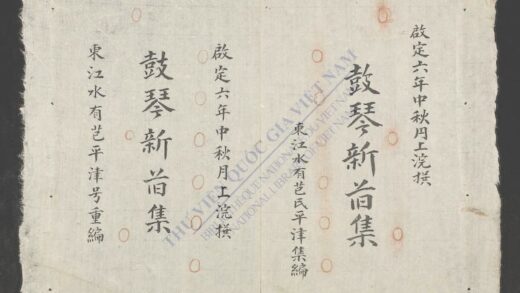 啟定六年中秋月上浣撰
鼓琴新音集
東江水有芑氏平津集編
啟定六年中秋月上浣撰
鼓琴新音集
東江水有芑平津号重編
THƯ VIỆN QUỐC GIA VIỆT NAM
BIBLIOTHÈQUE NATIONALE DU VIETNAM
NATIONAL LIBRARY OF VIETNAM